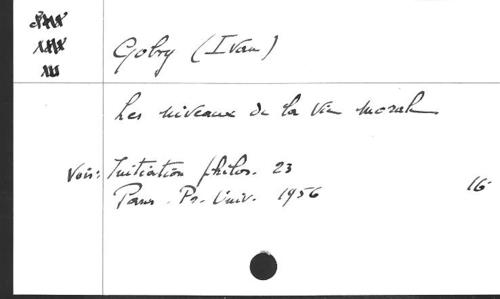 Gobry (Ivan)
Les niveaux de la vie morale
Voir: Initiation philos. 23
Paris. Pr. Univ. 1956 16°